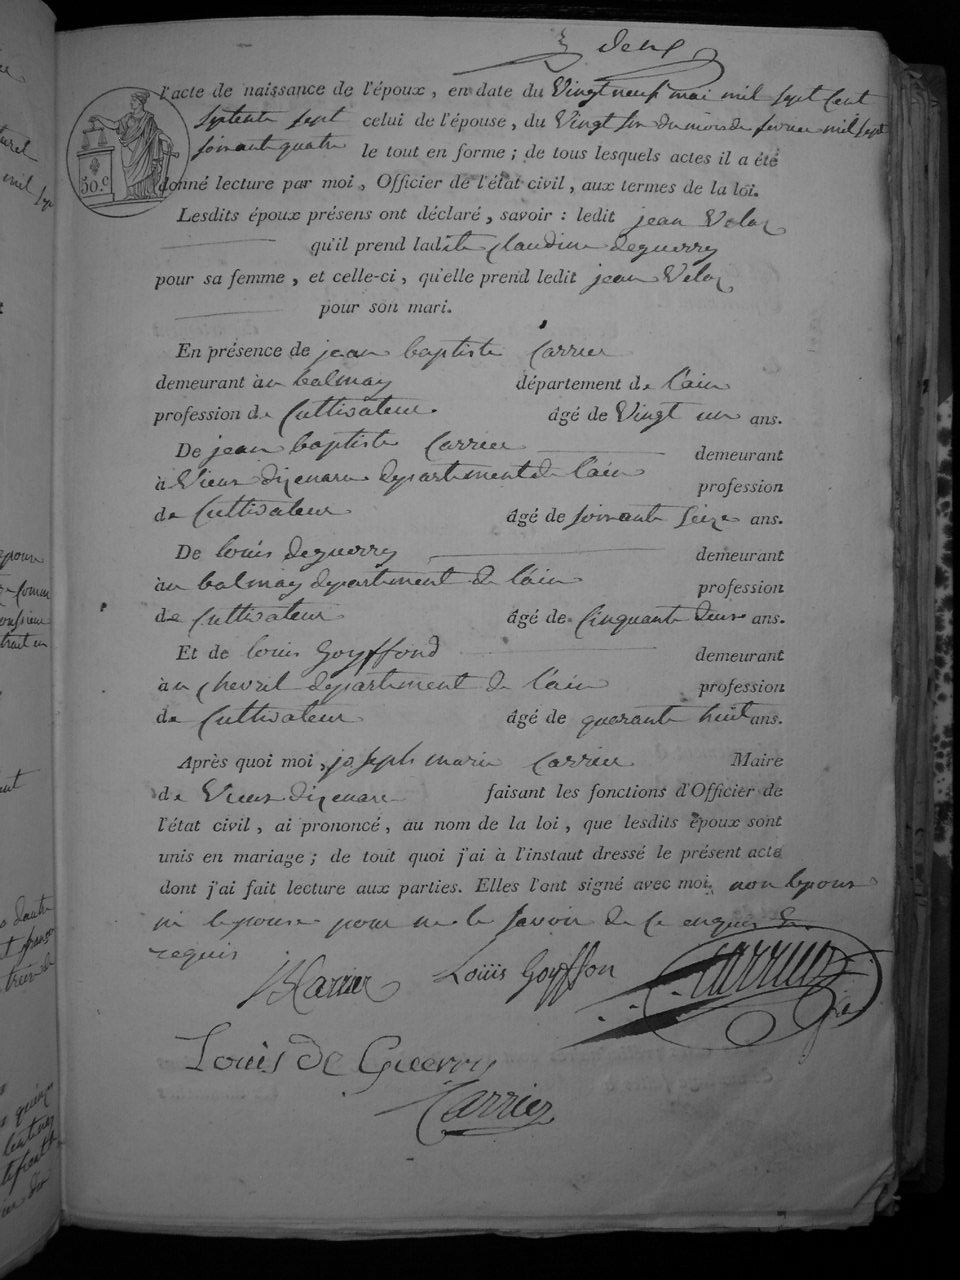 deux
l'acte de naissance de l'époux, en date du Vingt neuf mai mil sept Cent
Septente sept celui de l'épouse, du Vingt six du mois de fevrier mil sept
soixante quatre le tout en forme; de tous lesquels actes il a été
50.c
donné lecture par moi, Officier de l'état civil, aux termes de la loi.
Lesdits époux présens ont déclaré, savoir : ledit jean Velaz
qu'il prend ladite claudine deguerry
pour sa femme, et celle-ci, qu'elle prend ledit jean Velaz
pour son mari.
En présence de jean baptiste Carrier
demeurant au balmay département de l'ain
profession de Cultivateur. âgé de Vingt un ans.
De jean baptiste Carrier demeurant
à Vieux dizenave departement de l'ain profession
de Cultivateur âgé de soixante seize ans.
De louis deguerry demeurant
au balmay departement de l'ain profession
de Cultivateur âgé de Cinquante deux ans.
Et de louis Goyffond demeurant
au chevril departement de l'ain profession
de Cultivateur âgé de quarante huit ans.
Après quoi moi, joseph marie Carrier Maire
de Vieux dizenave faisant les fonctions d'Officier de
l'état civil, ai prononcé, au nom de la loi, que lesdits époux sont
unis en mariage; de tout quoi j'ai à l'instaut dressé le présent acte
dont j'ai fait lecture aux parties. Elles l'ont signé avec moi, non lepoux
ni lepouse pour ne le savoir de ce enquis &
requis
JB Carrier Louis Goyffon Carrier
Louis De Guerry
Carrier